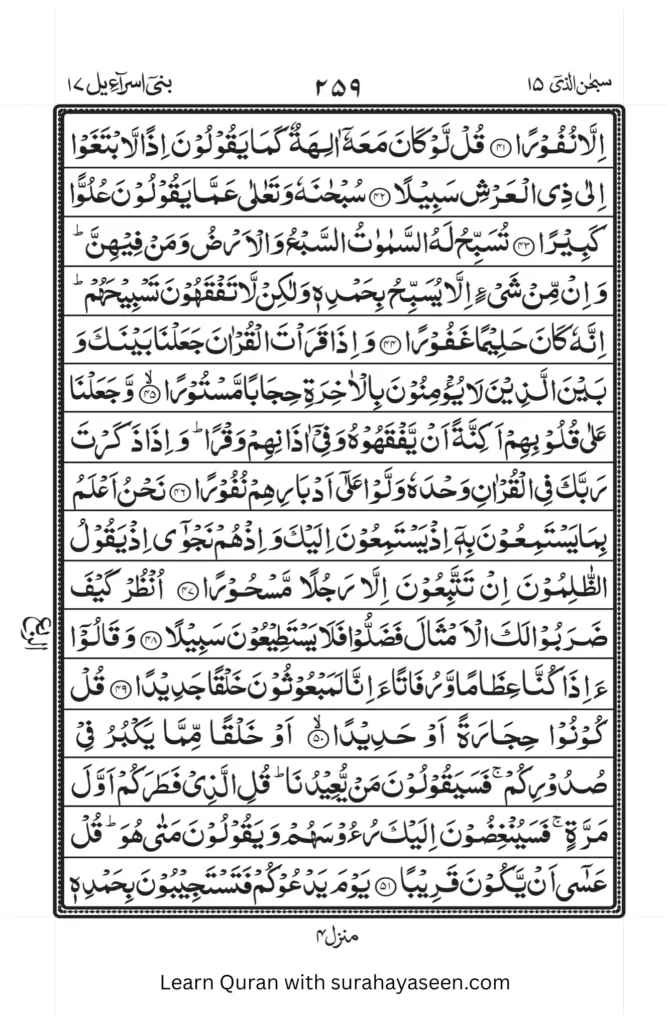 سبحٰن الذیٓ ۱۵
۲۵۹
بنیٓ اسرآءیل ۱۷
اِلَّا نُفُوْرًا ﴿۴۱﴾ قُلْ لَّوْ كَانَ مَعَهٗۤ اٰلِهَةٌ كَمَا یَقُوْلُوْنَ اِذًا لَّابْتَغَوْا
اِلٰى ذِی الْعَرْشِ سَبِیْلًا ﴿۴۲﴾ سُبْحٰنَهٗ وَ تَعٰلٰى عَمَّا یَقُوْلُوْنَ عُلُوًّا
كَبِیْرًا ﴿۴۳﴾ تُسَبِّحُ لَهُ السَّمٰوٰتُ السَّبْعُ وَ الْاَرْضُ وَ مَنْ فِیْهِنَّ ؕ
وَ اِنْ مِّنْ شَیْءٍ اِلَّا یُسَبِّحُ بِحَمْدِهٖ وَ لٰكِنْ لَّا تَفْقَهُوْنَ تَسْبِیْحَهُمْ ؕ
اِنَّهٗ كَانَ حَلِیْمًا غَفُوْرًا ﴿۴۴﴾ وَ اِذَا قَرَاْتَ الْقُرْاٰنَ جَعَلْنَا بَیْنَكَ وَ
بَیْنَ الَّذِیْنَ لَا یُؤْمِنُوْنَ بِالْاٰخِرَةِ حِجَابًا مَّسْتُوْرًا ﴿۴۵﴾ۙ وَّ جَعَلْنَا
عَلٰى قُلُوْبِهِمْ اَكِنَّةً اَنْ یَّفْقَهُوْهُ وَ فِیْۤ اٰذَانِهِمْ وَقْرًا ؕ وَ اِذَا ذَكَرْتَ
رَبَّكَ فِی الْقُرْاٰنِ وَحْدَهٗ وَلَّوْا عَلٰۤى اَدْبَارِهِمْ نُفُوْرًا ﴿۴۶﴾ نَحْنُ اَعْلَمُ
بِمَا یَسْتَمِعُوْنَ بِهٖۤ اِذْ یَسْتَمِعُوْنَ اِلَیْكَ وَ اِذْ هُمْ نَجْوٰۤى اِذْ یَقُوْلُ
الظّٰلِمُوْنَ اِنْ تَتَّبِعُوْنَ اِلَّا رَجُلًا مَّسْحُوْرًا ﴿۴۷﴾ اُنْظُرْ كَیْفَ
ضَرَبُوْا لَكَ الْاَمْثَالَ فَضَلُّوْا فَلَا یَسْتَطِیْعُوْنَ سَبِیْلًا ﴿۴۸﴾ وَ قَالُوْۤا
الربع
ءَاِذَا كُنَّا عِظَامًا وَّ رُفَاتًا ءَاِنَّا لَمَبْعُوْثُوْنَ خَلْقًا جَدِیْدًا ﴿۴۹﴾ قُلْ
كُوْنُوْا حِجَارَةً اَوْ حَدِیْدًا ﴿۵۰﴾ۙ اَوْ خَلْقًا مِّمَّا یَكْبُرُ فِیْ
صُدُوْرِكُمْ ۚ فَسَیَقُوْلُوْنَ مَنْ یُّعِیْدُنَا ؕ قُلِ الَّذِیْ فَطَرَكُمْ اَوَّلَ
مَرَّةٍ ۚ فَسَیُنْغِضُوْنَ اِلَیْكَ رُءُوْسَهُمْ وَ یَقُوْلُوْنَ مَتٰى هُوَ ؕ قُلْ
عَسٰۤى اَنْ یَّكُوْنَ قَرِیْبًا ﴿۵۱﴾ یَوْمَ یَدْعُوْكُمْ فَتَسْتَجِیْبُوْنَ بِحَمْدِهٖ
منزل ۴
Learn Quran with surahayaseen.com